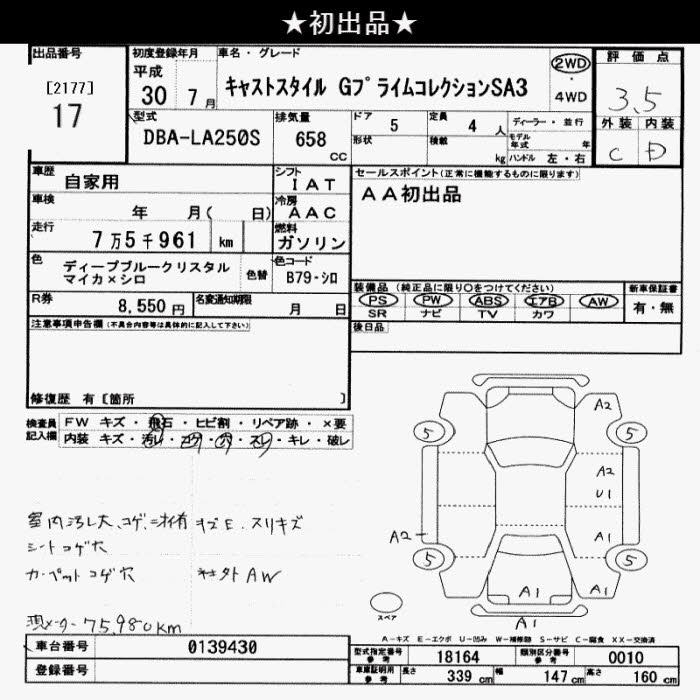 ★初出品★
出品番号 初度登録年月 車名・グレード 評価点
[2177] 平成 2WD
17 30 7月 キャストスタイル Gプライムコレクション SA3 ・ 4WD 3.5
型式 排気量 ドア 5 定員 4人 ディーラー・並行 外装 内装
DBA-LA250S 658 形状 積載 モデル年式 年 C D
cc kg ハンドル 左・右
車歴 自家用 シフト IAT セールスポイント(正常に機能するものに限ります)
車検 年 月( 日) 冷房 AAC AA初出品
走行 7万5千961 km 燃料 ガソリン
色 ディープブルークリスタル 色替 色コード
マイカ×シロ B79-シロ 装備品(純正品に限り○をつけてください) 新車保証書
R券 8,550円 名変通知期限 月 日 PS PW ABS エアB AW 有・無
SR ナビ TV カワ
注意事項申告欄(不具合内容等は具体的に記入して下さい) 後日品
修復歴 有[箇所 ]
検査員 FW キズ・飛石・ヒビ割・リペア跡・×要
記入欄 内装 キズ・汚レ・コゲ・穴・スレ・キレ・破レ
A2
5 5
A2
U1
A2 A1
5 5
A1 A1
A1
室内汚レ大、コゲ、ニオイ有 キズE.スリキズ
シートコゲ穴
カーペットコゲ穴 社外AW
現メーター75,980km
スペア
A-キズ E-エクボ U-凹み W-補修跡 S-サビ C-腐食 XX-交換済
車台番号 0139430 型式指定番号 参考 18164 類別区分番号 参考 0010
登録番号 車庫証明用 参考 長さ 339cm 幅 147cm 高さ 160cm